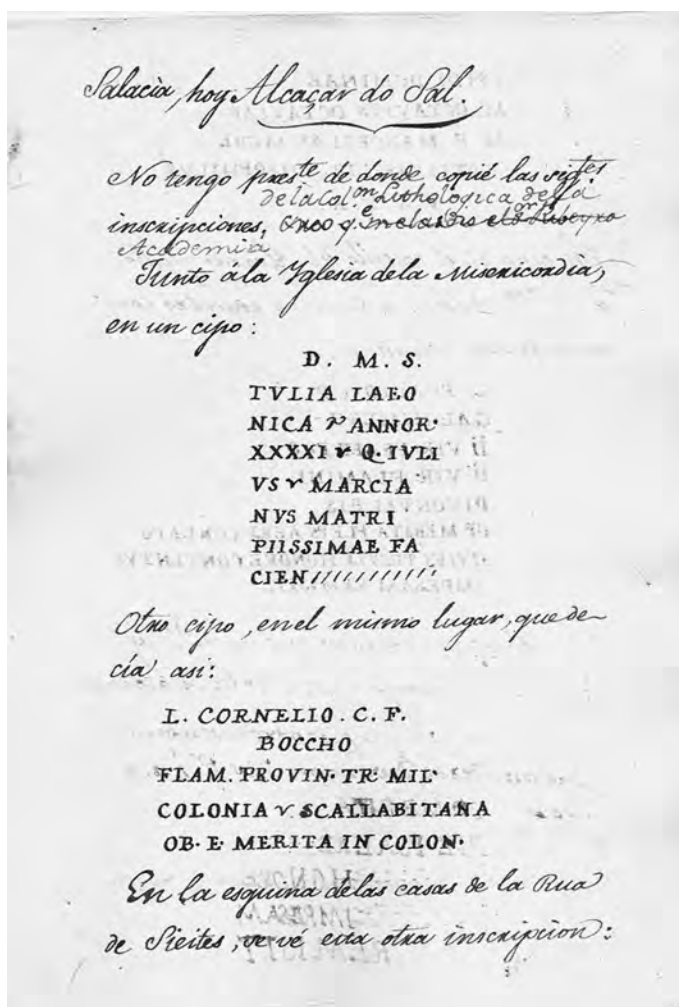 Salacia, hoy Alcaçar do Sal.
No tengo pres.te de donde copié las sig.tes
de la Col.on Lithologica de esta
inscripciones, creo q.e
Academia
Junto á la Yglesia de la Misericordia,
en un cipo:
D. M. S.
IVLIA LAEO
NICA ANNOR·
XXXXI Q. IVLI
VS MARCIA
NVS MATRI
PIISSIMAE FA
CIEN///////////
Otro cipo, en el mismo lugar, que de-
cía asi:
L. CORNELIO . C. F.
BOCCHO
FLAM. PROVIN· TR· MIL·
COLONIA SCALLABITANA
OB· E· MERITA IN COLON·
En la esquina de las casas de la Rua
de Sieites, se vé esta otra inscripcion: